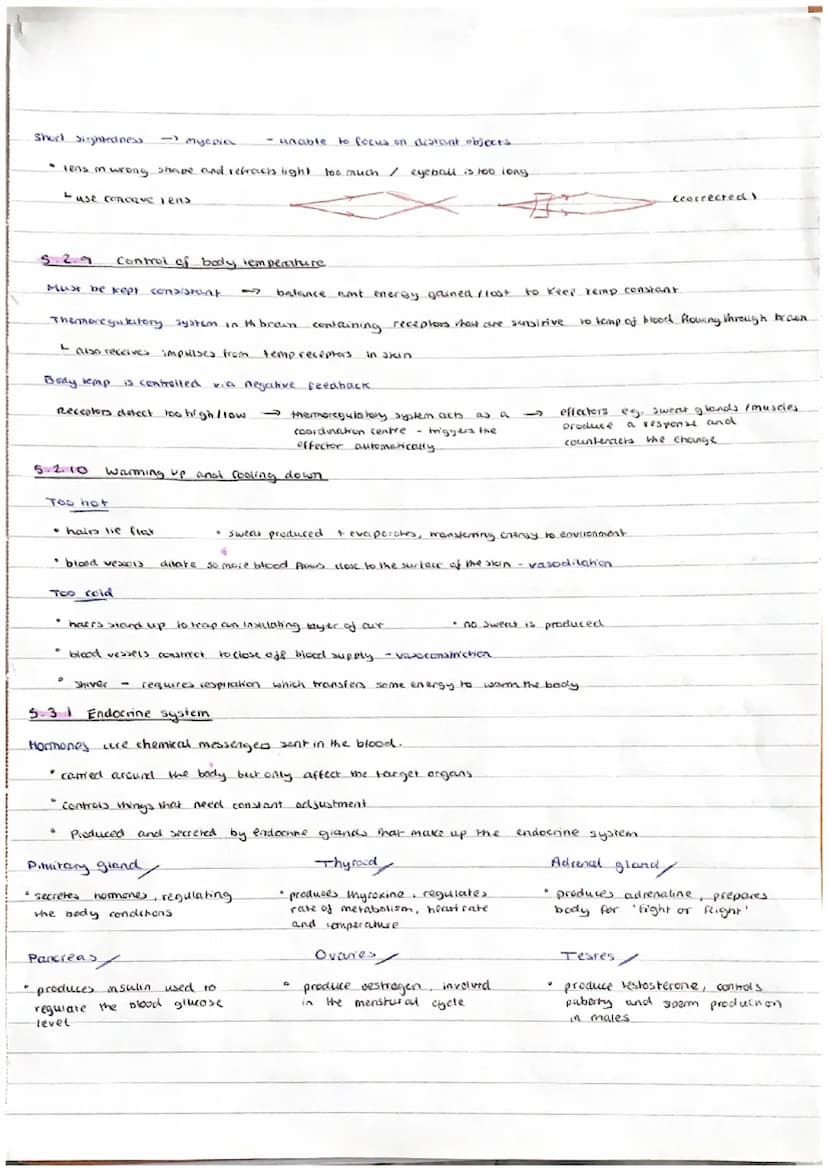 Short sightedness → myopia - unable to focus on distant objects
• lens in wrong shape and refracts light too much / eyeball is too long
└ use concave lens (corrected)
5.2.9 Control of body temperature
Must be kept consistant → balance amt energy gained / lost to keep temp constant
Thermoregulatory system in th brain containing receptors that are sensitive to temp of blood flowing through brain
└ also receives impulses from temp receptors in skin
Body temp is controlled via negative feedback
Receptors detect too high/low → thermoregulatory system acts as a → effectors eg. sweat glands / muscles
coordination centre - triggers the produce a response and
effector automatically counteracts the change
5.2.10 Warming up and cooling down
Too hot
• hairs lie flat • sweat produced + evaporates, transferring energy to environment
• blood vessels dilate so more blood flows close to the surface of the skin - vasodilation
Too cold
• hairs stand up to trap an insulating layer of air • no sweat is produced
• blood vessels constrict to close off blood supply - vasoconstriction
• shiver - requires respiration which transfers some energy to warm the body
5.3.1 Endocrine system
Hormones are chemical messengers sent in the blood.
• carried around the body but only affect the target organs
• controls things that need constant adjustment
• Produced and secreted by endocrine glands that make up the endocrine system
Pituitary gland Thyroid Adrenal gland
• secretes hormones, regulating • produces thyroxine, regulates • produces adrenaline, prepares
the body conditions rate of metabolism, heart rate body for 'fight or flight'
and temperature
Pancreas Ovaries Testes
• produces insulin used to • produce oestrogen, involved • produce testosterone, controls
regulate the blood glucose in the menstural cycle puberty and sperm production
level in males